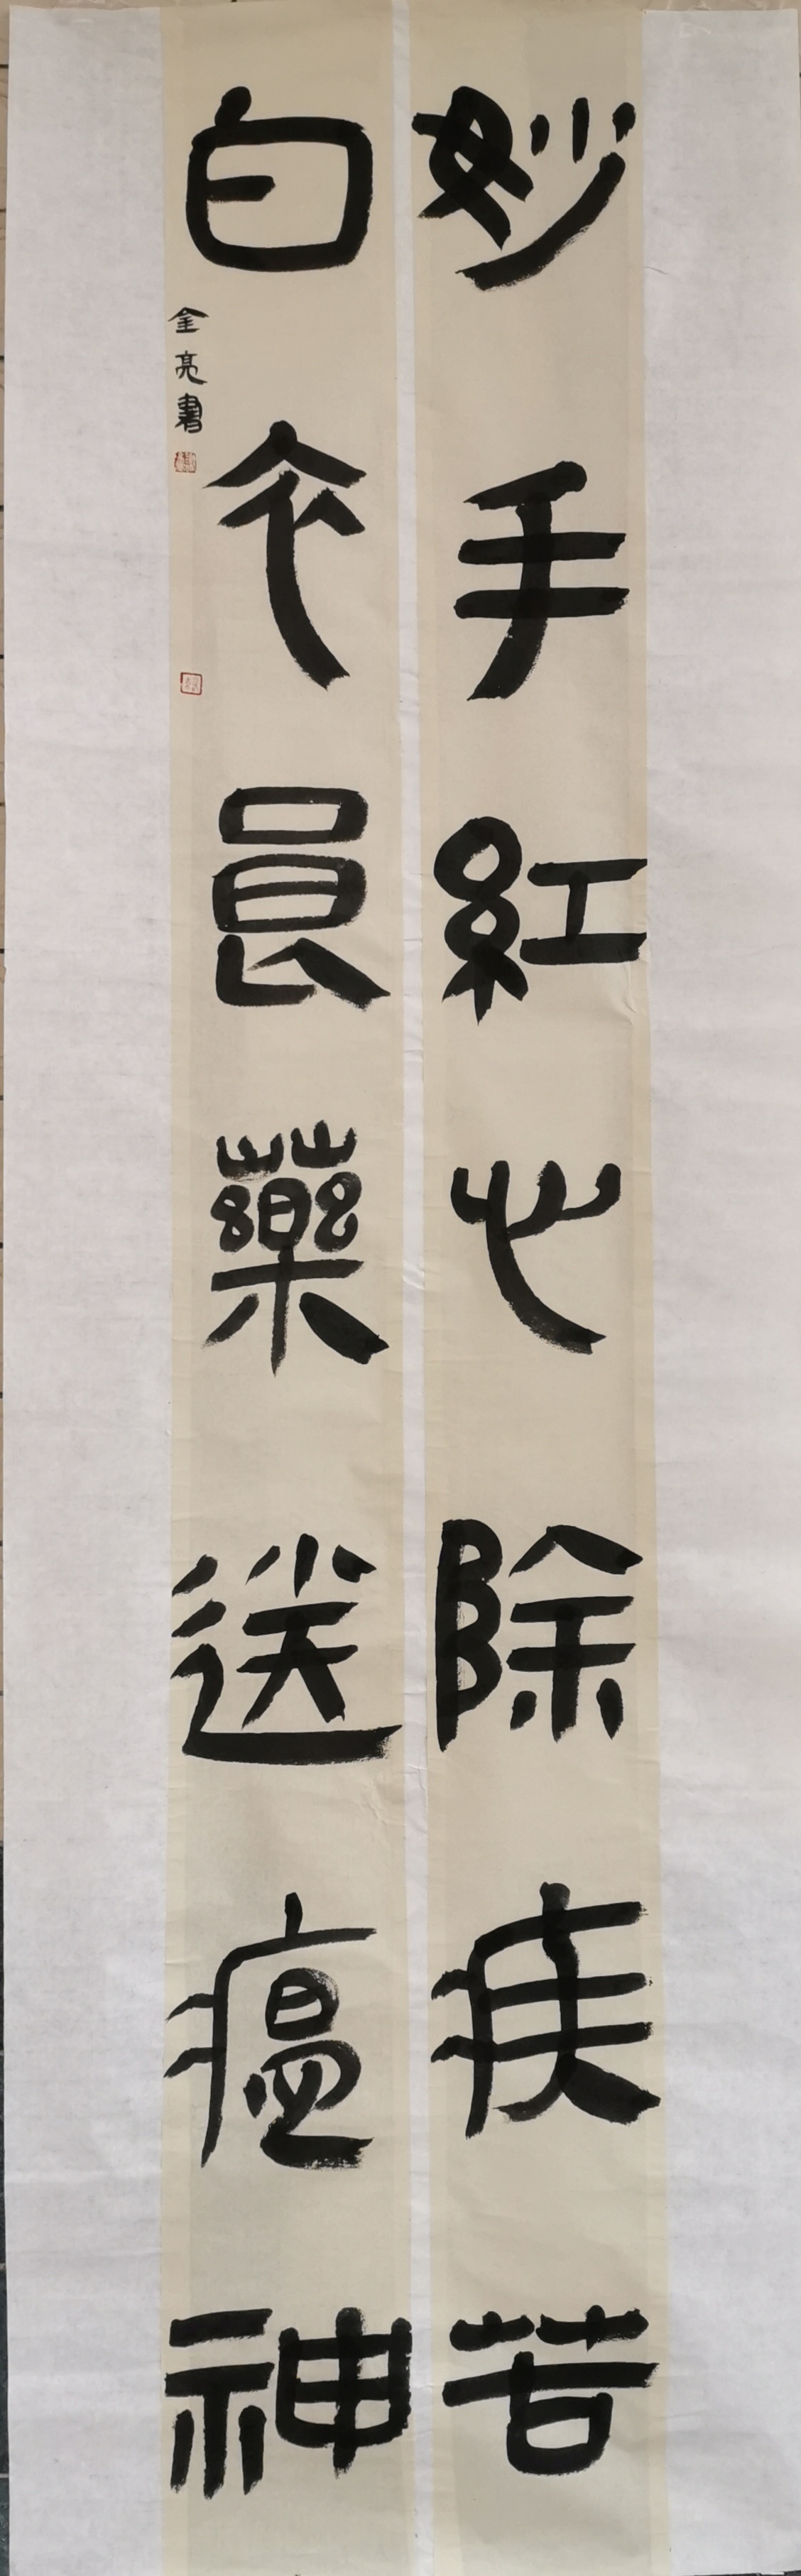 妙手紅心除疾苦
白衣良藥送瘟神
全亮書